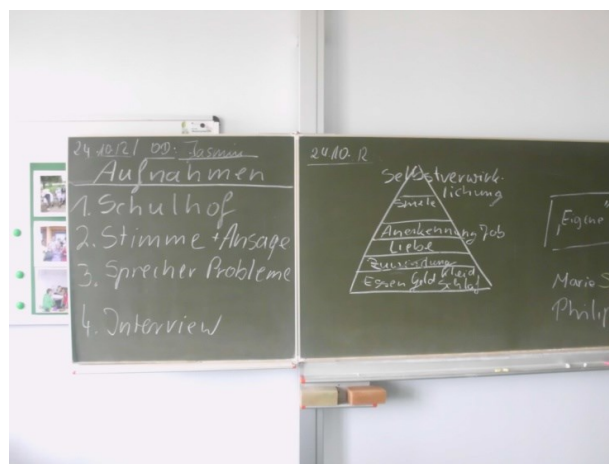 24.10.12/ OD: Jasmin
Aufnahmen
1. Schulhof
2. Stimme + Ansage
3. Sprecher Probleme
4. Interview
24.10.12
Selbstverwirk-
lichung
Anerkennung Job
Liebe
Essen Geld Kleid
Schlaf
"Eigene"
Mario S
Philip